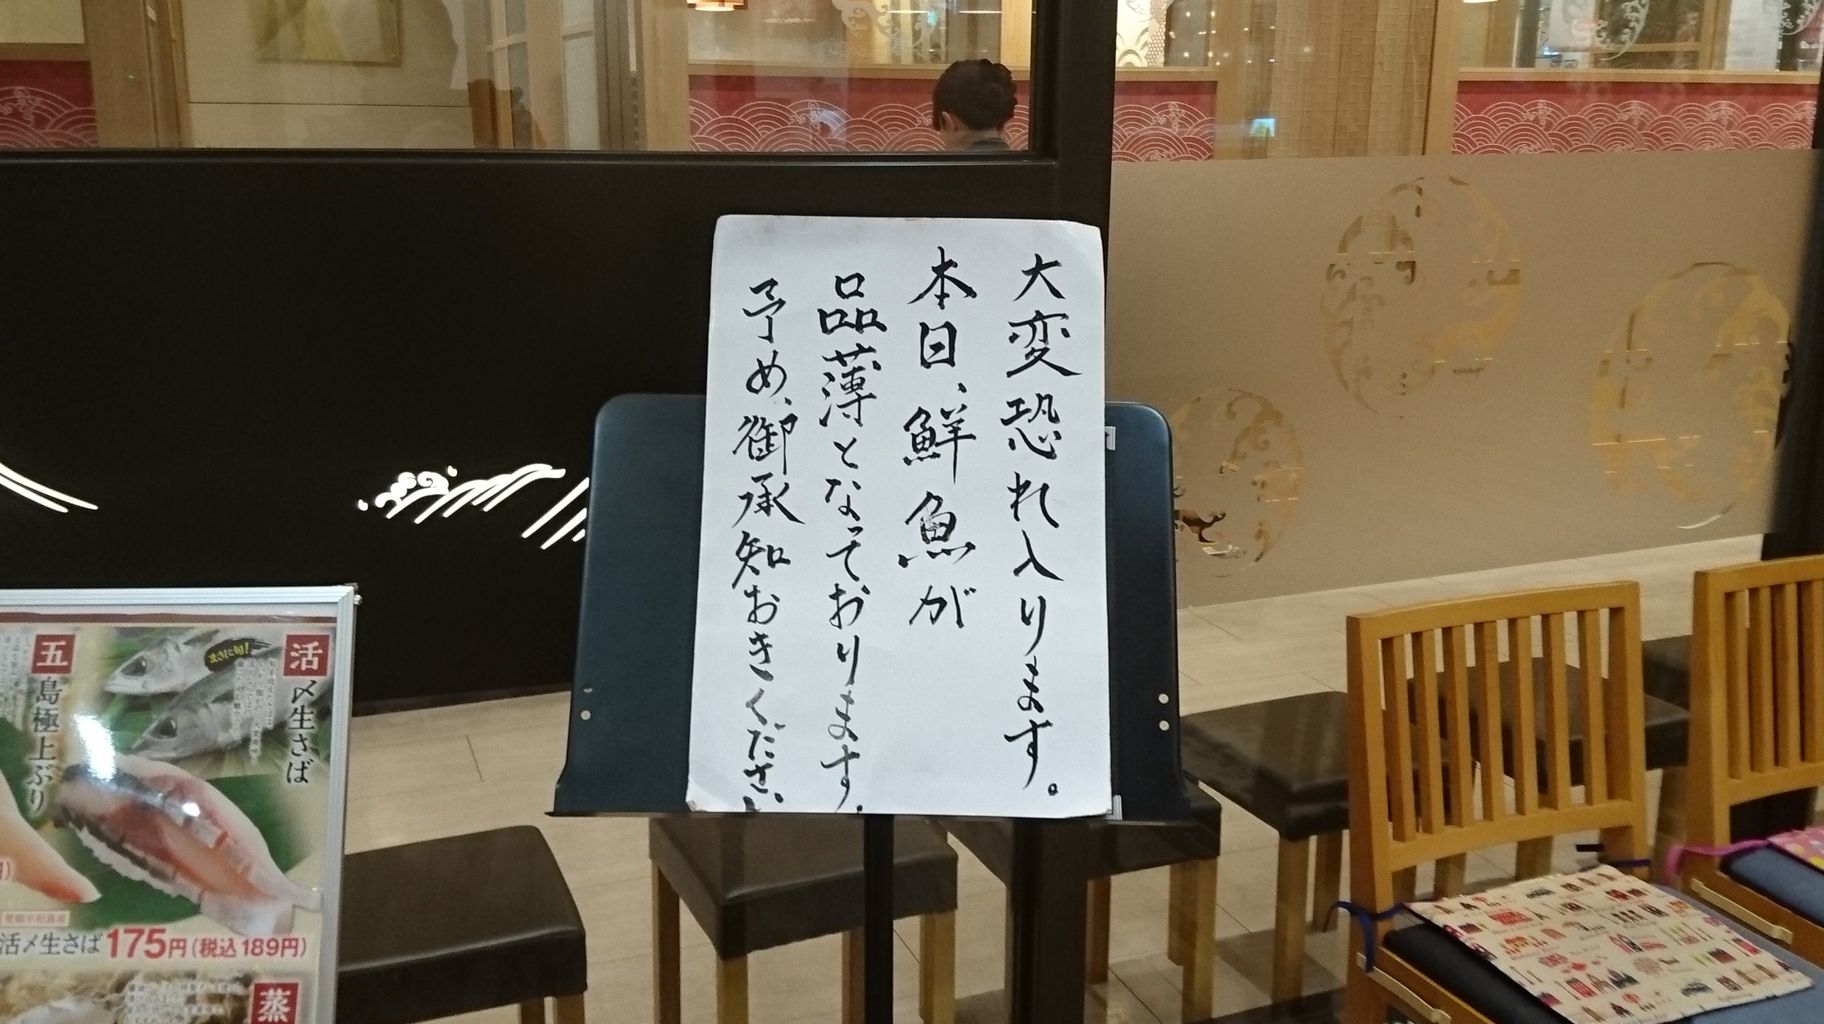 大変恐れ入ります。
本日、鮮魚が
品薄となっております。
予め、御承知おきください
活〆生さば
まさに旬!
五島極上ぶり
愛媛宇和島産
活〆生さば175円(税込189円)
蒸